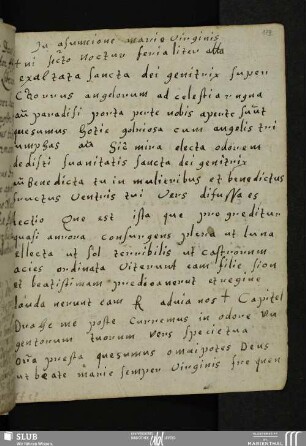 In assumcione marie virginis
exaltata sancta dei genitrix super
Choros angelorum ad celestia regna
an̄ paradisi porta perte nobis aperte sunt
quesumus hotie golriosa cum angelis tri
umphas sic mira electa odorem
dedisti suavitatis sancta dei genitrix
an̄ Benedicta tu in mulitribus et benedictus
fructus ventris tui vers difussa es
lectio Que est ista que pre greditur
quasi aurora consurgens plena ut luna
ellecta ut sol terribilis ut castrorum
acies ordinata viterunt eam filie sion
et beatissimam predicaverunt et regine
lauda nerunt eam R aduia nos + Capitel
Drahe me poste Curremus in odore vn
gentorum tuorum vers specietua
presta quesumus omnipotes Deus
ut beate marie semper virginis
SLUB
Wir führen Wissen.
MARIENTHAL